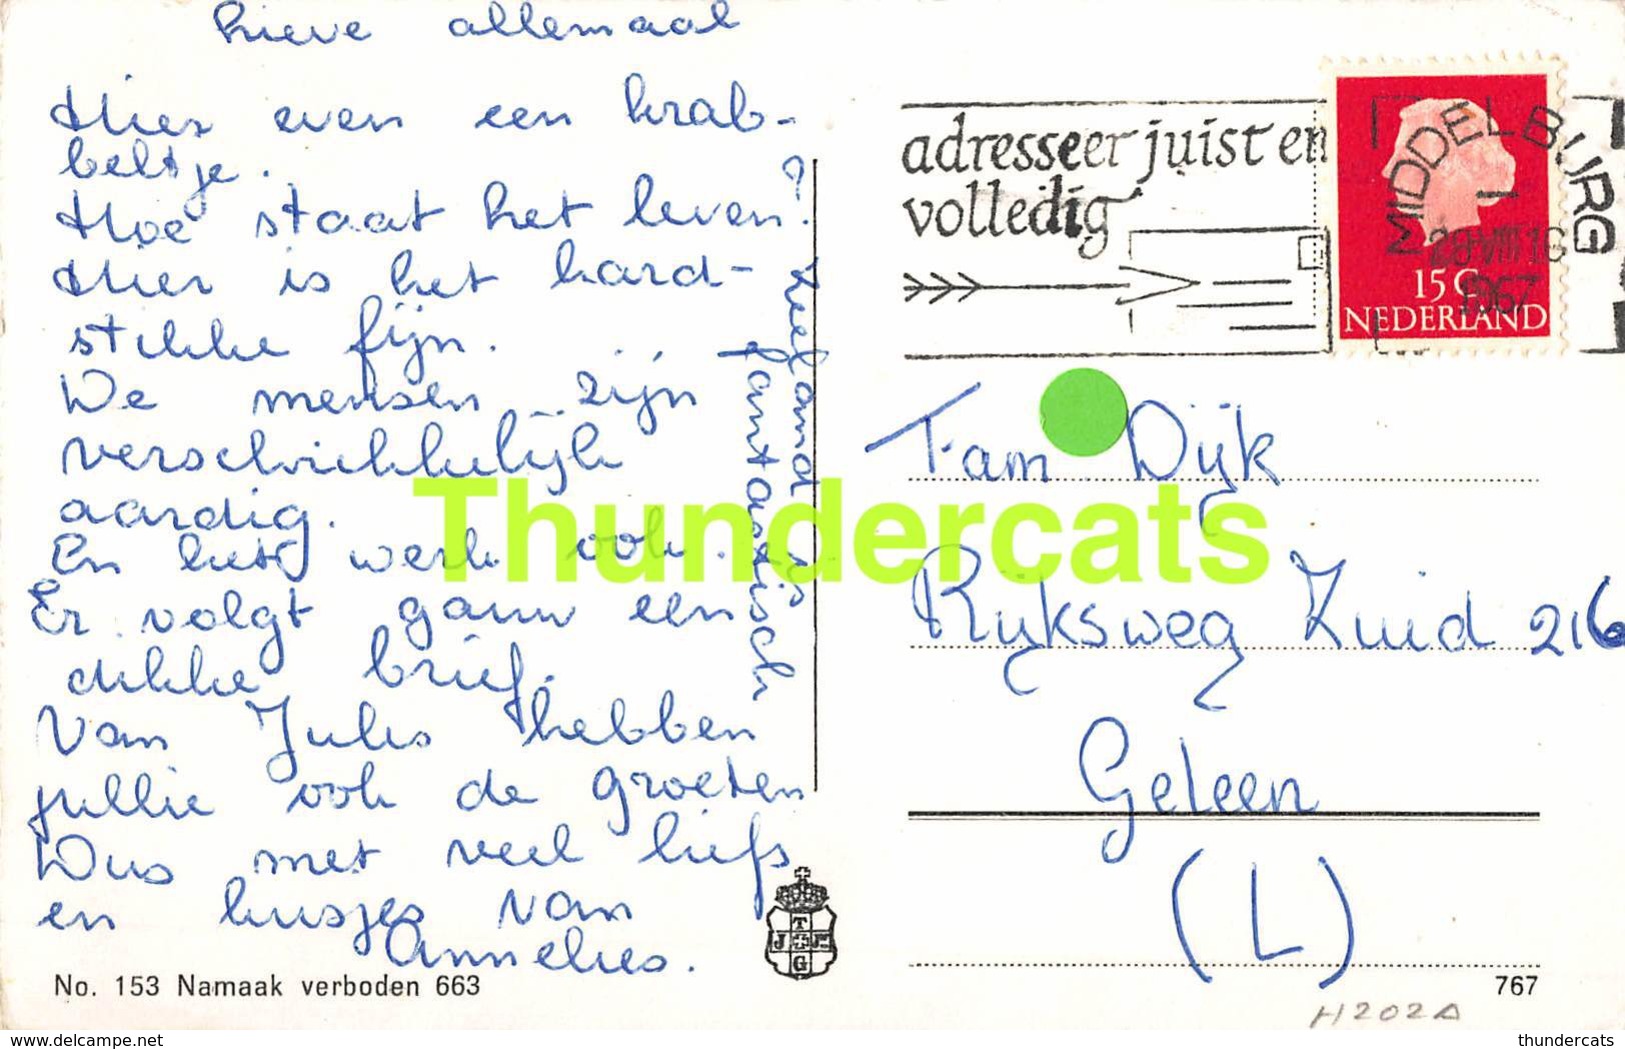 Lieve allemaal
Hier even een krab-
beltje.
Hoe staat het leven?
Hier is het hard-
stikke fijn.
De mensen zijn
verschrikkelijk
aardig.
En het werk ook.
Er volgt gauw een
dikke brief.
Van Jules hebben
jullie ook de groeten
Dus met veel liefs
en kusjes van
Annelies.
Zeeland is
fantastisch
No. 153 Namaak verboden 663
T
J Jr
G
adresseer juist en
volledig
MIDDELBURG
1967
15 C
NEDERLAND
Fam Dijk
Rijksweg Zuid 216
Geleen
(L)
767
H202A
Thundercats
delcampe.net
thundercats